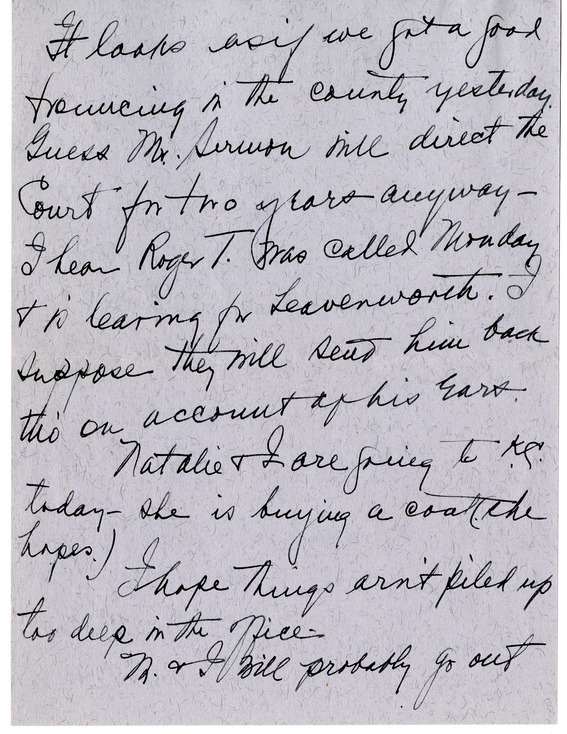 It looks as if we got a good
trouncing in the county yesterday.
Guess Mr. Sermon will direct the
Court for two years anyway —
I hear Roger T. was called Monday
& is leaving for Leavenworth. I
suppose they will send him back
tho' on account of his ears.
Natalie & I are going to K.C.
today — she is buying a coat (she
hopes.)
I hope things arn't piled up
too deep in the office —
M. & I will probably go out